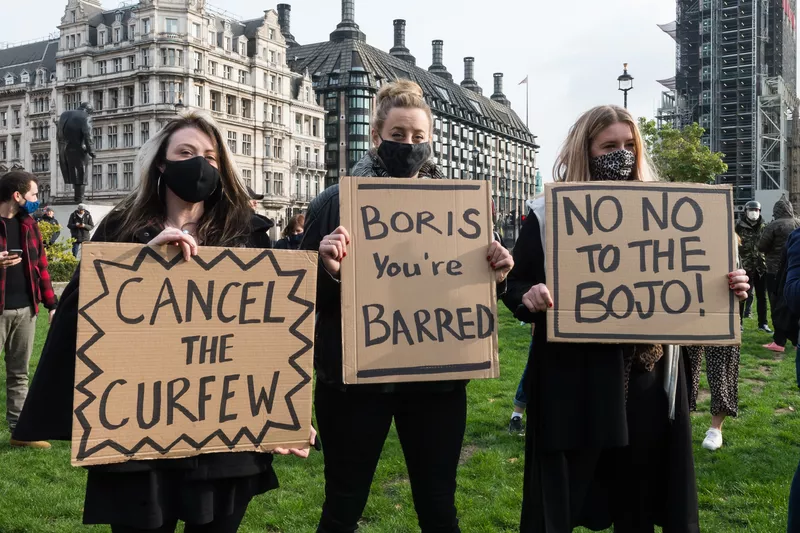 CANCEL
THE
CURFEW
BORIS
You're
BARRED
NO NO
TO THE
BOJO!